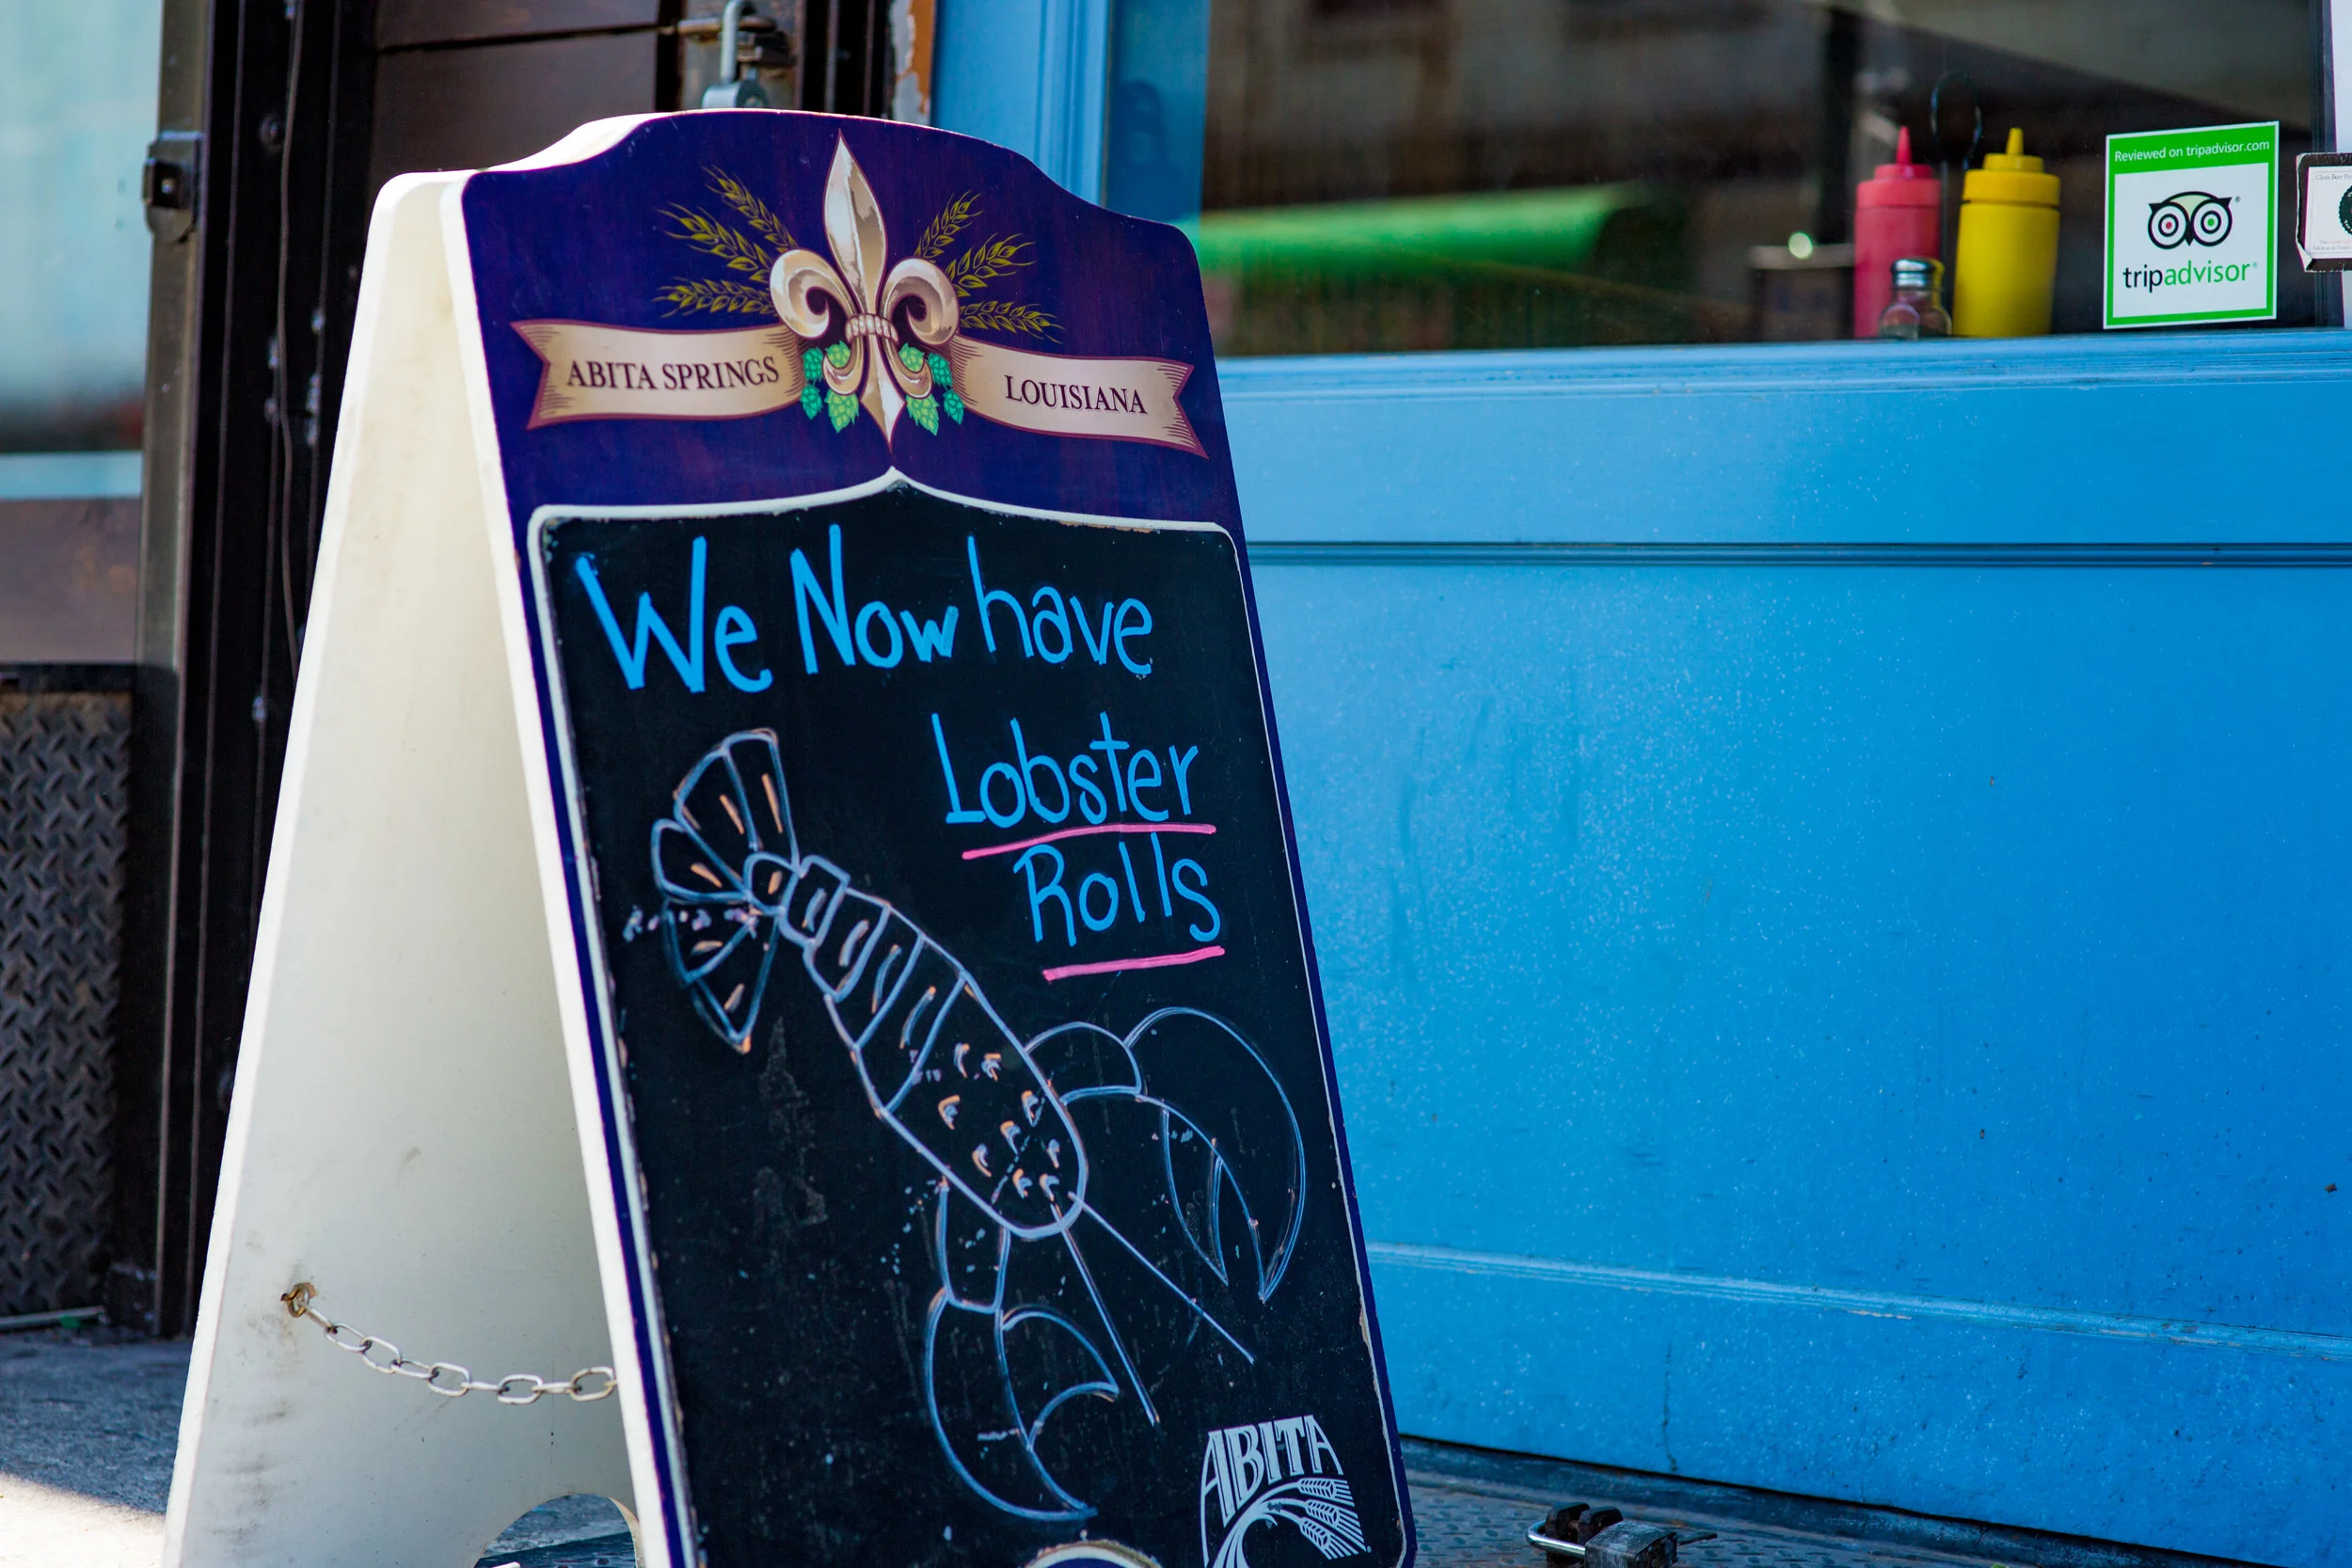 Reviewed on tripadvisor.com
tripadvisor®
ABITA SPRINGS LOUISIANA
We Now have
Lobster
Rolls
ABITA